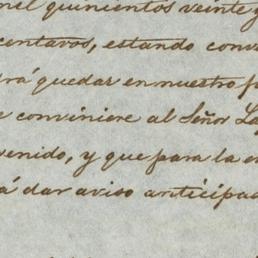 mil quinientos veinte y
centavos, estando conv
rá quedar en nuestro p
e conviniere al Señor La
venido, y que para la e
á dar aviso anticipad